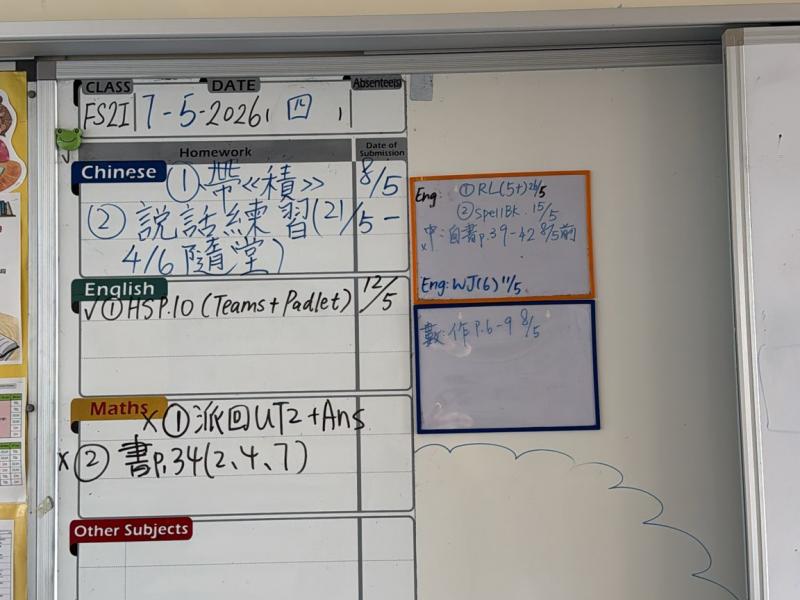 CLASS DATE Absentee(s)
FS2I 7-5-2026, 四
Homework Date of Submission
Chinese ① 帶《積》 8/5
② 說話練習(21/5-
4/6 隨堂)
English
✓① HSP.10 (Teams+Padlet) 12/5
Maths
x ① 派回UT2+Ans
x ② 書p.34(2、4、7)
Other Subjects
Eng: ① RL(5+) 26/5
② Spell BK. 15/5
x 中: 自書p.39-42 8/5前
Eng: WJ(6) 11/5
數: 作 P.6-9 8/5